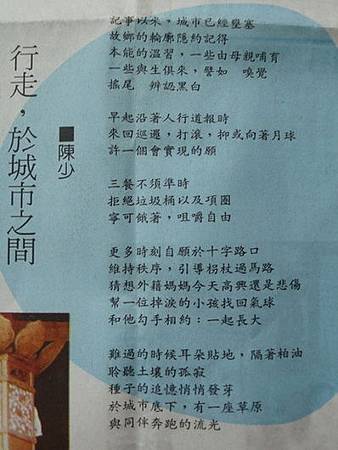 行走，於城市之間
■陳少
記事以來，城市已經壅塞
故鄉的輪廓隱約記得
本能的溫習，一些由母親哺育
一些與生俱來，譬如　嗅覺
搖尾　辨認黑白
早起沿著人行道報時
來回巡邏，打滾，抑或向著月球
許一個會實現的願
三餐不須準時
拒絕垃圾桶以及項圈
寧可餓著，咀嚼自由
更多時刻自願於十字路口
維持秩序，引導柺杖過馬路
猜想外籍媽媽今天高興還是悲傷
幫一位掉淚的小孩找回氣球
和他勾手相約：一起長大
難過的時候耳朵貼地，隔著柏油
聆聽土壤的孤寂
種子的追憶悄悄發芽
於城市底下，有一座草原
與同伴奔跑的流光